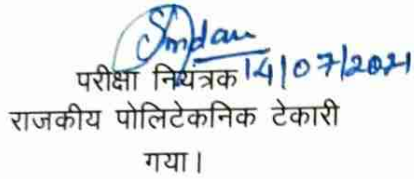 14/07/2021
परीक्षा नियंत्रक
राजकीय पोलिटेकनिक टेकारी
गया।